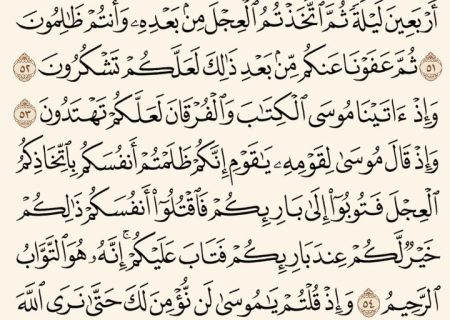 أَرۡبَعِينَ لَيۡلَةٗ ثُمَّ ٱتَّخَذۡتُمُ ٱلۡعِجۡلَ مِنۢ بَعۡدِهِۦ وَأَنتُمۡ ظَٰلِمُونَ
٥١ ثُمَّ عَفَوۡنَا عَنكُم مِّنۢ بَعۡدِ ذَٰلِكَ لَعَلَّكُمۡ تَشۡكُرُونَ ٥٢
وَإِذۡ ءَاتَيۡنَا مُوسَى ٱلۡكِتَٰبَ وَٱلۡفُرۡقَانَ لَعَلَّكُمۡ تَهۡتَدُونَ ٥٣
وَإِذۡ قَالَ مُوسَىٰ لِقَوۡمِهِۦ يَٰقَوۡمِ إِنَّكُمۡ ظَلَمۡتُمۡ أَنفُسَكُم بِٱتِّخَاذِكُمُ
ٱلۡعِجۡلَ فَتُوبُوٓاْ إِلَىٰ بَارِئِكُمۡ فَٱقۡتُلُوٓاْ أَنفُسَكُمۡ ذَٰلِكُمۡ
خَيۡرٞ لَّكُمۡ عِندَ بَارِئِكُمۡ فَتَابَ عَلَيۡكُمۡۚ إِنَّهُۥ هُوَ ٱلتَّوَّابُ
ٱلرَّحِيمُ ٥٤ وَإِذۡ قُلۡتُمۡ يَٰمُوسَىٰ لَن نُّؤۡمِنَ لَكَ حَتَّىٰ نَرَى ٱللَّهَ